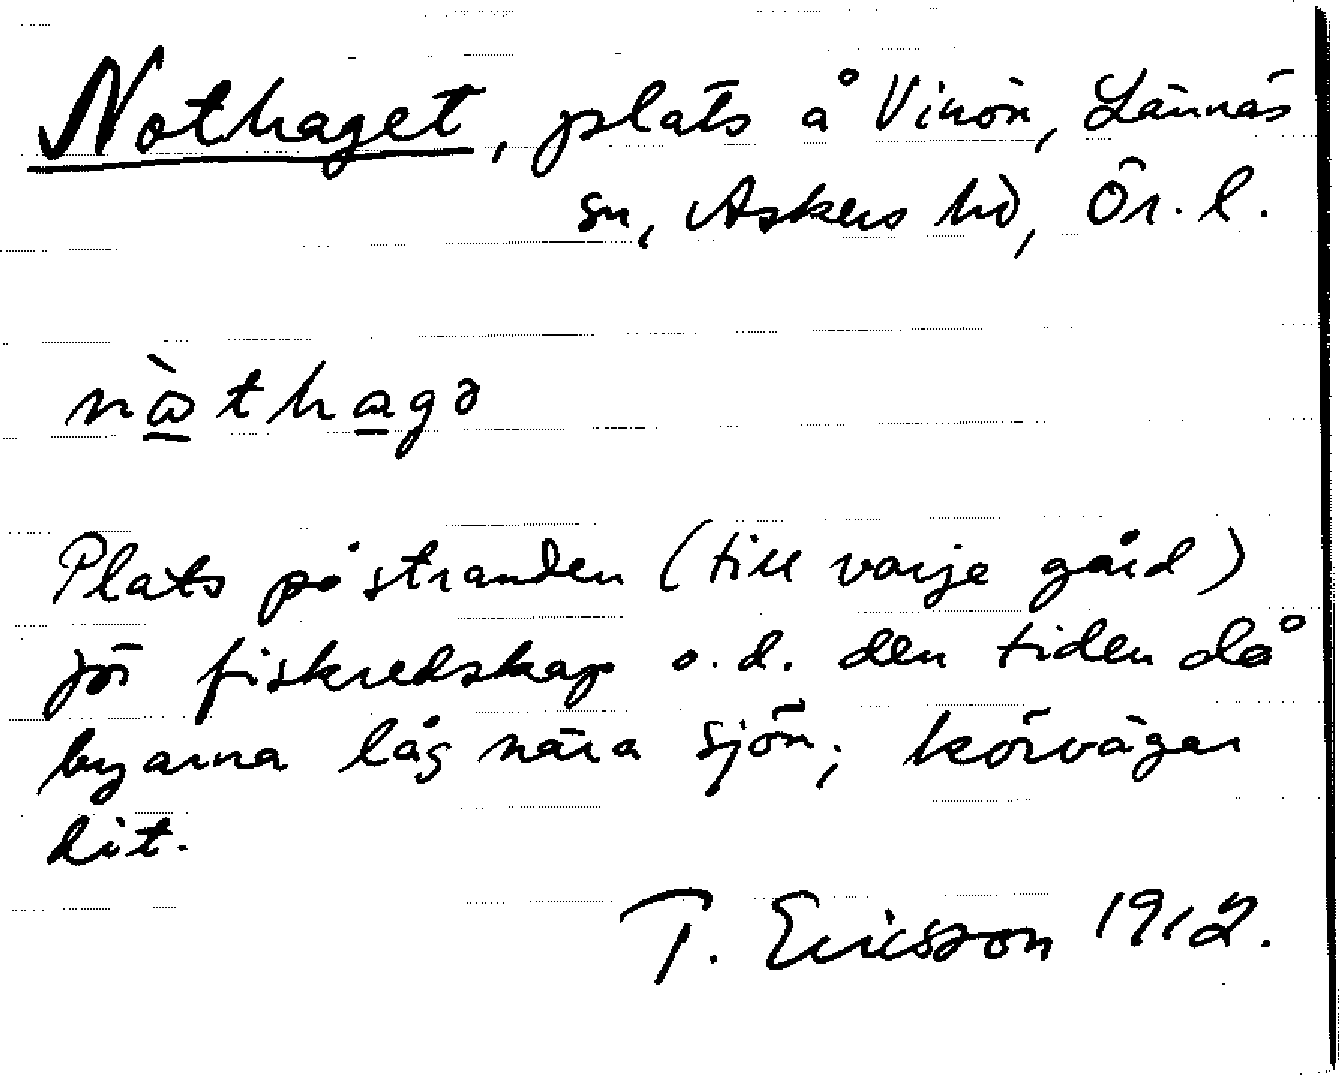 Nothaget, plats å Vinön, Lännäs
sn, Askers hd, Ör. l.
nò̱thaga̱gə
Plats på stranden (till varje gård)
för fiskredskap o.d. den tiden då
byarna låg nära sjön; körvägar
dit.
T. Ericsson 1912.